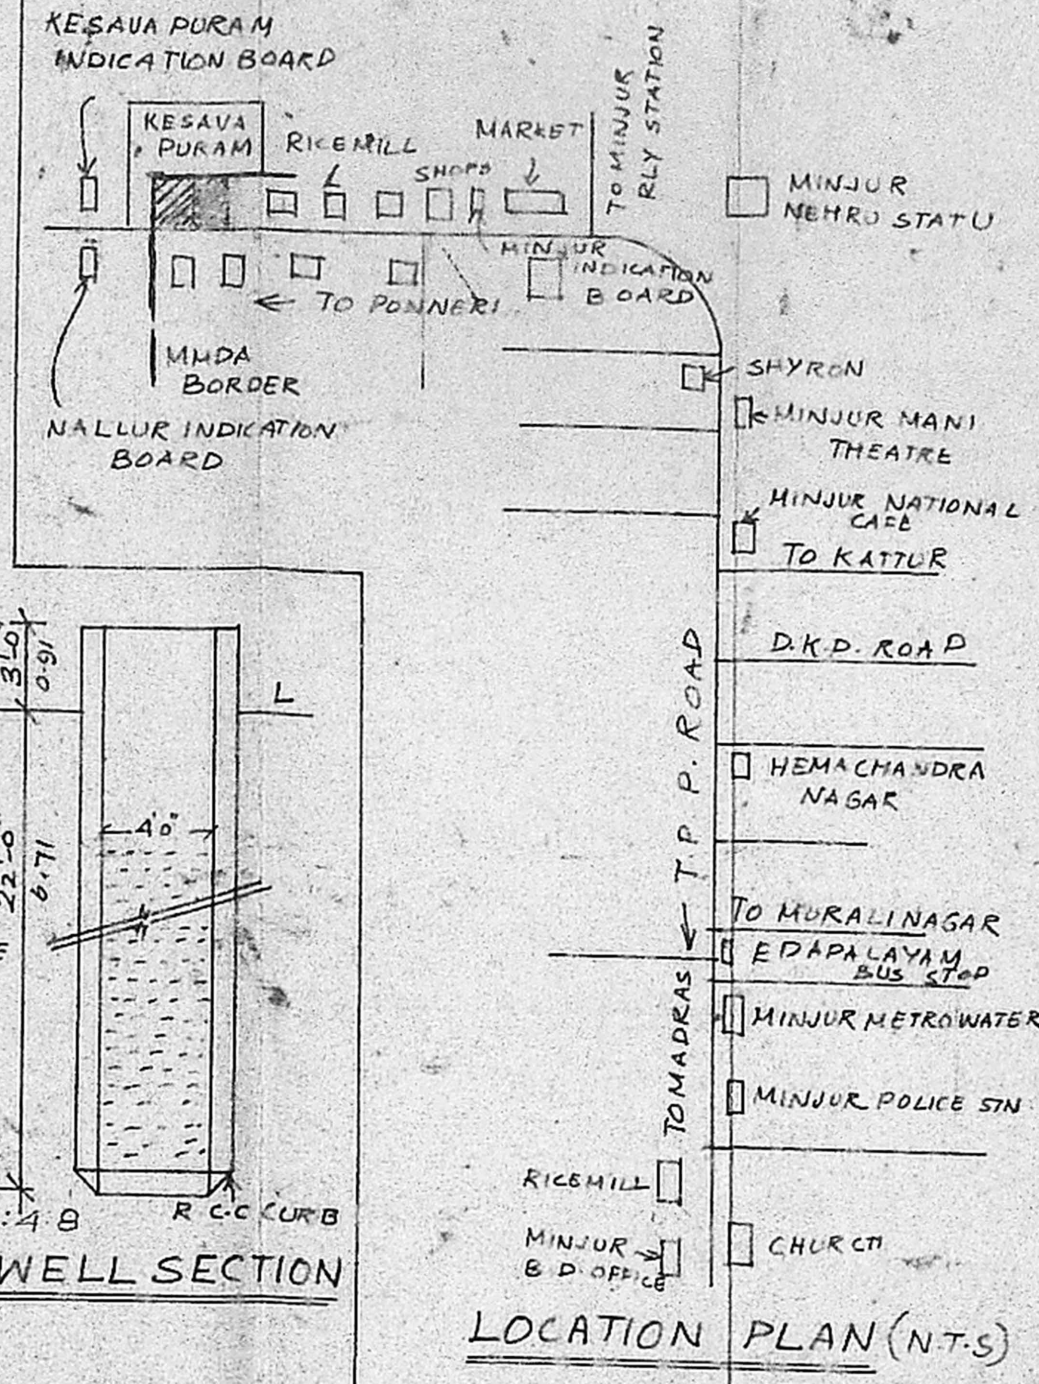 KESAVA PURAM
INDICATION BOARD
KESAVA
PURAM
RICEMILL
SHOPS
MARKET
TO MINJUR
RLY STATION
MINJUR
NEHRU STATU
MINJUR
INDICATION
BOARD
← TO PONNERI
MMDA
BORDER
NALLUR INDICATION
BOARD
SHYRON
MINJUR MANI
THEATRE
MINJUR NATIONAL
CAFE
TO KATTUR
D.K.D. ROAD
HEMACHANDRA
NAGAR
T.P.P. ROAD
TO MURALINAGAR
EDAPALAYAM
BUS STOP
TO MADRAS
MINJUR METROWATER
MINJUR POLICE STN
RICEMILL
MINJUR
B D. OFFICE
CHURCH
LOCATION PLAN (N.T.S)
3'-0"
0.91
L
4'0"
22'-0"
6.71
:4 8
R C.C CURB
WELL SECTION